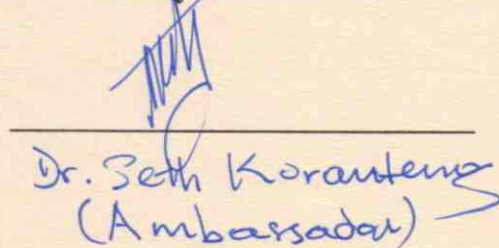 Dr. Seth Koranteng
(Ambassador)